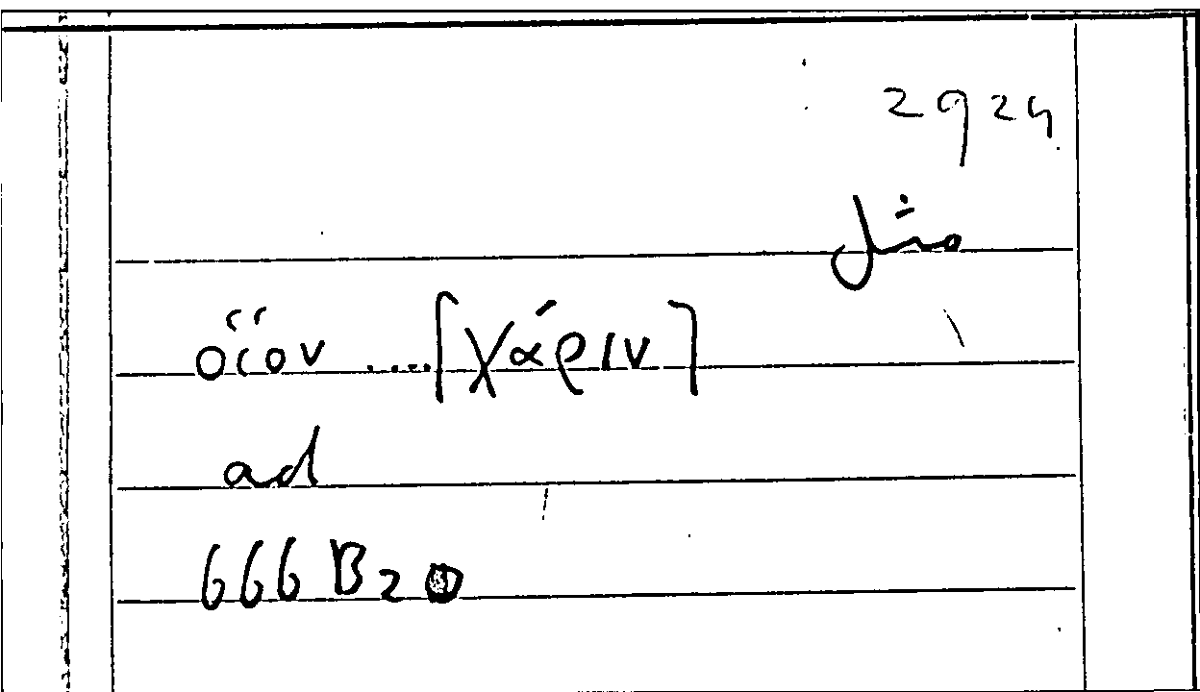 2924
οἷον ....[χάριν]
ad
666 B20